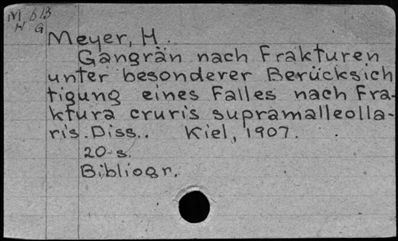 M. b/B
H G
Meyer, H.
Gangrän nach Frakturen
unter besonderer Berücksich
tigung eines Falles nach Fra-
ktura cruris supramalleolla-
ris. Diss.. Kiel, 1907.
20 s.
Bibliogr.